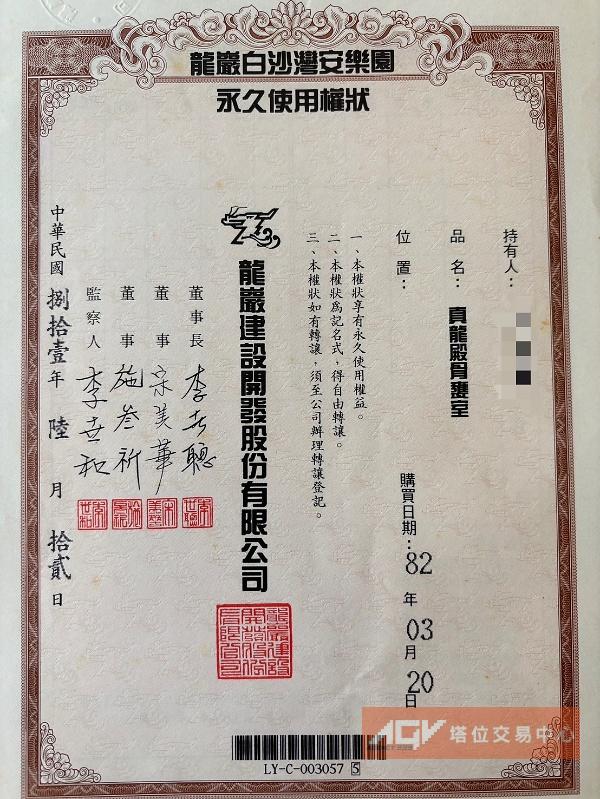 龍巖白沙灣安樂園
永久使用權狀
持有人：
品名：真龍殿骨甕室
位置：
購買日期：82年03月20日
一、本權狀享有永久使用權益。
二、本權狀為記名式，得自由轉讓。
三、本權狀如有轉讓，須至公司辦理轉讓登記。
龍巖建設開發股份有限公司
董事長 李世聰
董事 宋美華
董事 施叁祈
監察人 李世和
中華民國捌拾壹年陸月拾貳日
LY-C-003057 5
AGV 塔位交易中心